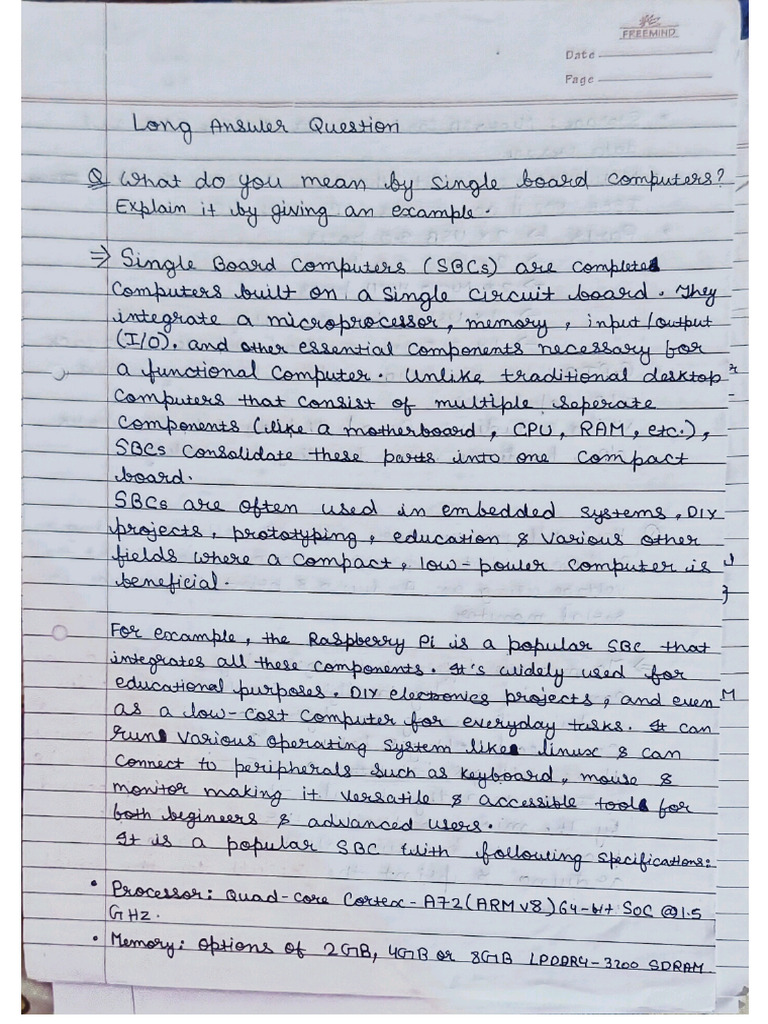 FREEMIND
Date
Page
Long Answer Question
Q What do you mean by single board computers?
Explain it by giving an example.
⇒ Single Board Computers (SBCs) are complete
computers built on a single circuit board. They
integrate a microprocessor, memory, input/output
(I/O), and other essential components necessary for
a functional computer. Unlike traditional desktop
computers that consist of multiple seperate
components (like a motherboard, CPU, RAM, etc.),
SBCs consolidate these parts into one compact
board.
SBCs are often used in embedded systems, DIY
projects, prototyping, education & various other
fields where a compact, low-power computer is
beneficial.
For example, the Raspberry Pi is a popular SBC that
integrates all these components. It's widely used for
educational purposes, DIY electronics projects, and even
as a low-cost computer for everyday tasks. It can
run various operating system like linux & can
connect to peripherals such as keyboard, mouse &
monitor making it versatile & accessible tool for
both begineers & advanced users.
It is a popular SBC with following specifications:
• Processor: Quad-core Cortex-A72 (ARM v8) 64-bit SoC @1.5
GHz.
• Memory: options of 2GB, 4GB or 8GB LPDDR4-3200 SDRAM